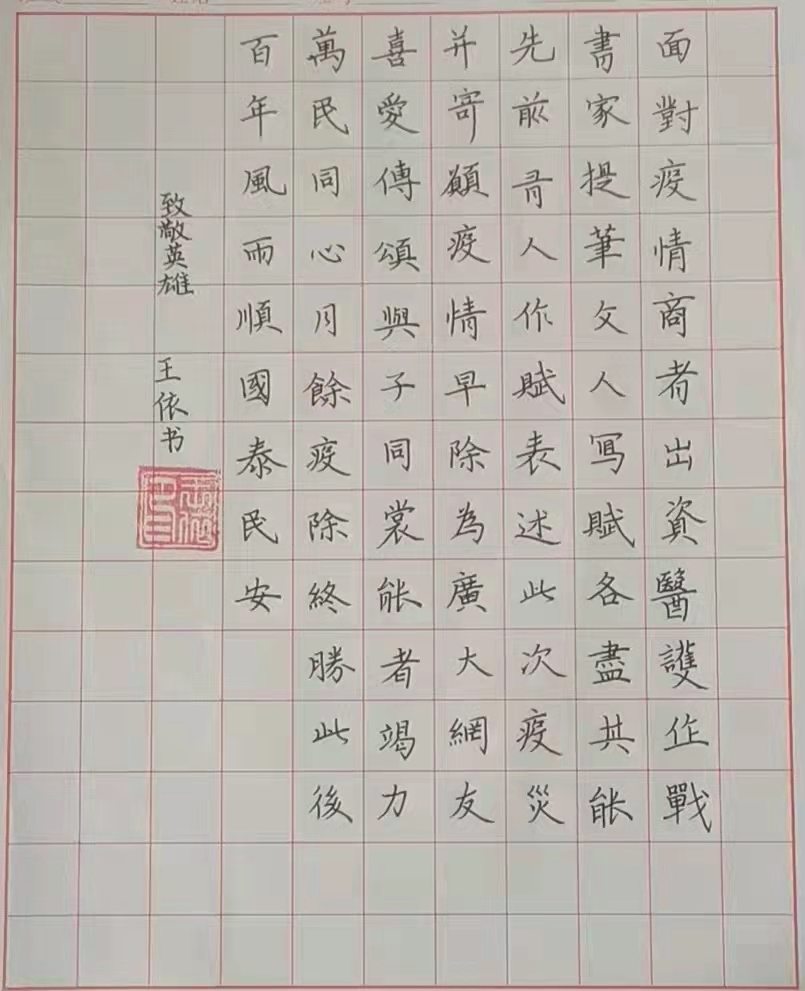 面對疫情商者出資醫護作戰
書家提筆文人寫賦各盡其能
先前有人作賦表述此次疫災
并寄願疫情早除為廣大網友
喜愛傳頌與子同裳能者竭力
萬民同心月餘疫除終勝此後
百年風雨順國泰民安
致敬英雄 王依书